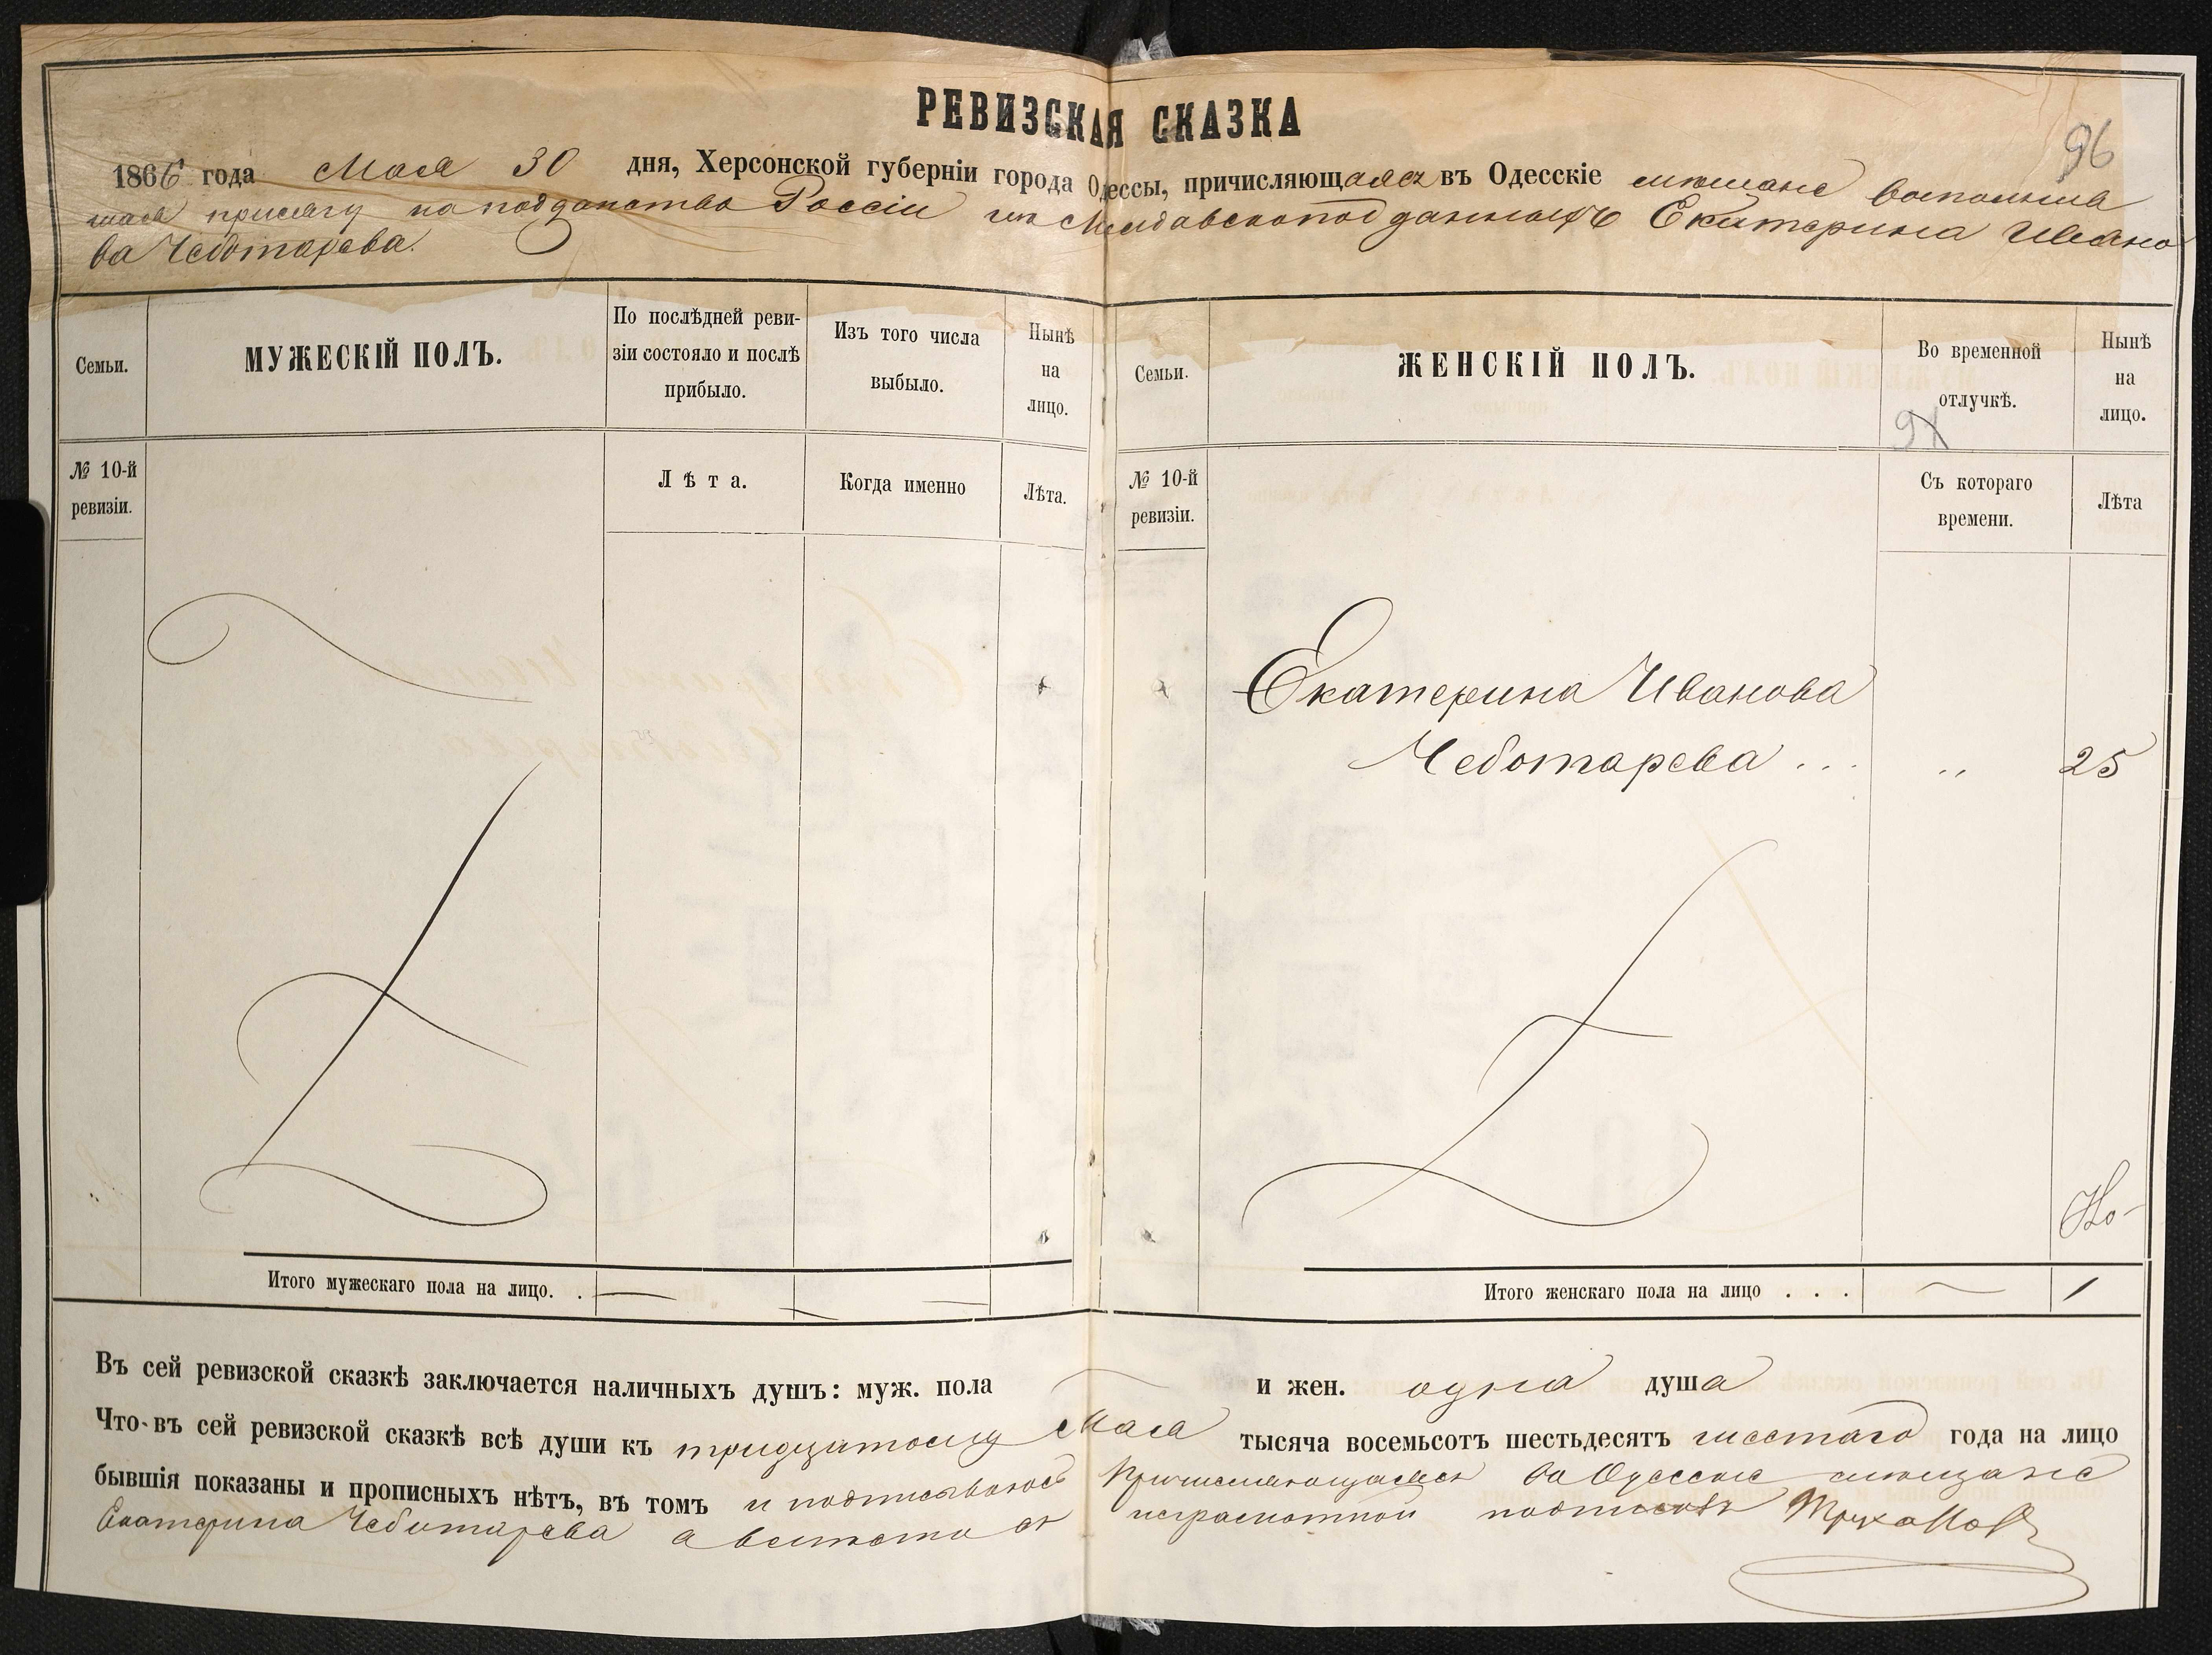 РЕВИЗСКАЯ СКАЗКА
96
1866 года Мая 30 дня, Херсонской губерніи города Одессы, причисляющаяся въ Одесскіе мещане воспользова
шая присягу на подданство Россіи изъ Молдавскоподданныхъ Екатерина Ивано
ва Чеботарева.
Семьи.
МУЖЕСКІЙ ПОЛЪ.
По послѣдней реви-
зіи состояло и послѣ
прибыло.
Изъ того числа
выбыло.
Нынѣ
на
лицо.
Семьи.
ЖЕНСКІЙ ПОЛЪ.
Во временной
отлучкѣ.
Нынѣ
на
лицо.
№ 10-й
ревизіи.
Лѣта.
Когда именно
Лѣта.
№ 10-й
ревизіи.
Съ котораго
времени.
Лѣта
Екатерина Иванова
Чеботарева ... „ 25
Итого мужескаго пола на лицо. .
Итого женскаго пола на лицо . . . — 1
Въ сей ревизской сказкѣ заключается наличныхъ душъ: муж. пола — и жен. одна душа
Что въ сей ревизской сказкѣ всѣ души къ тридцатому Мая тысяча восемьсотъ шестьдесятъ шестаго года на лицо
бывшія показаны и прописныхъ нѣтъ, въ томъ и подписываюсь Причисляющаяся въ Одесскіе мещане
Екатерина Чеботарева а вместо ея неграмотной подписалъ